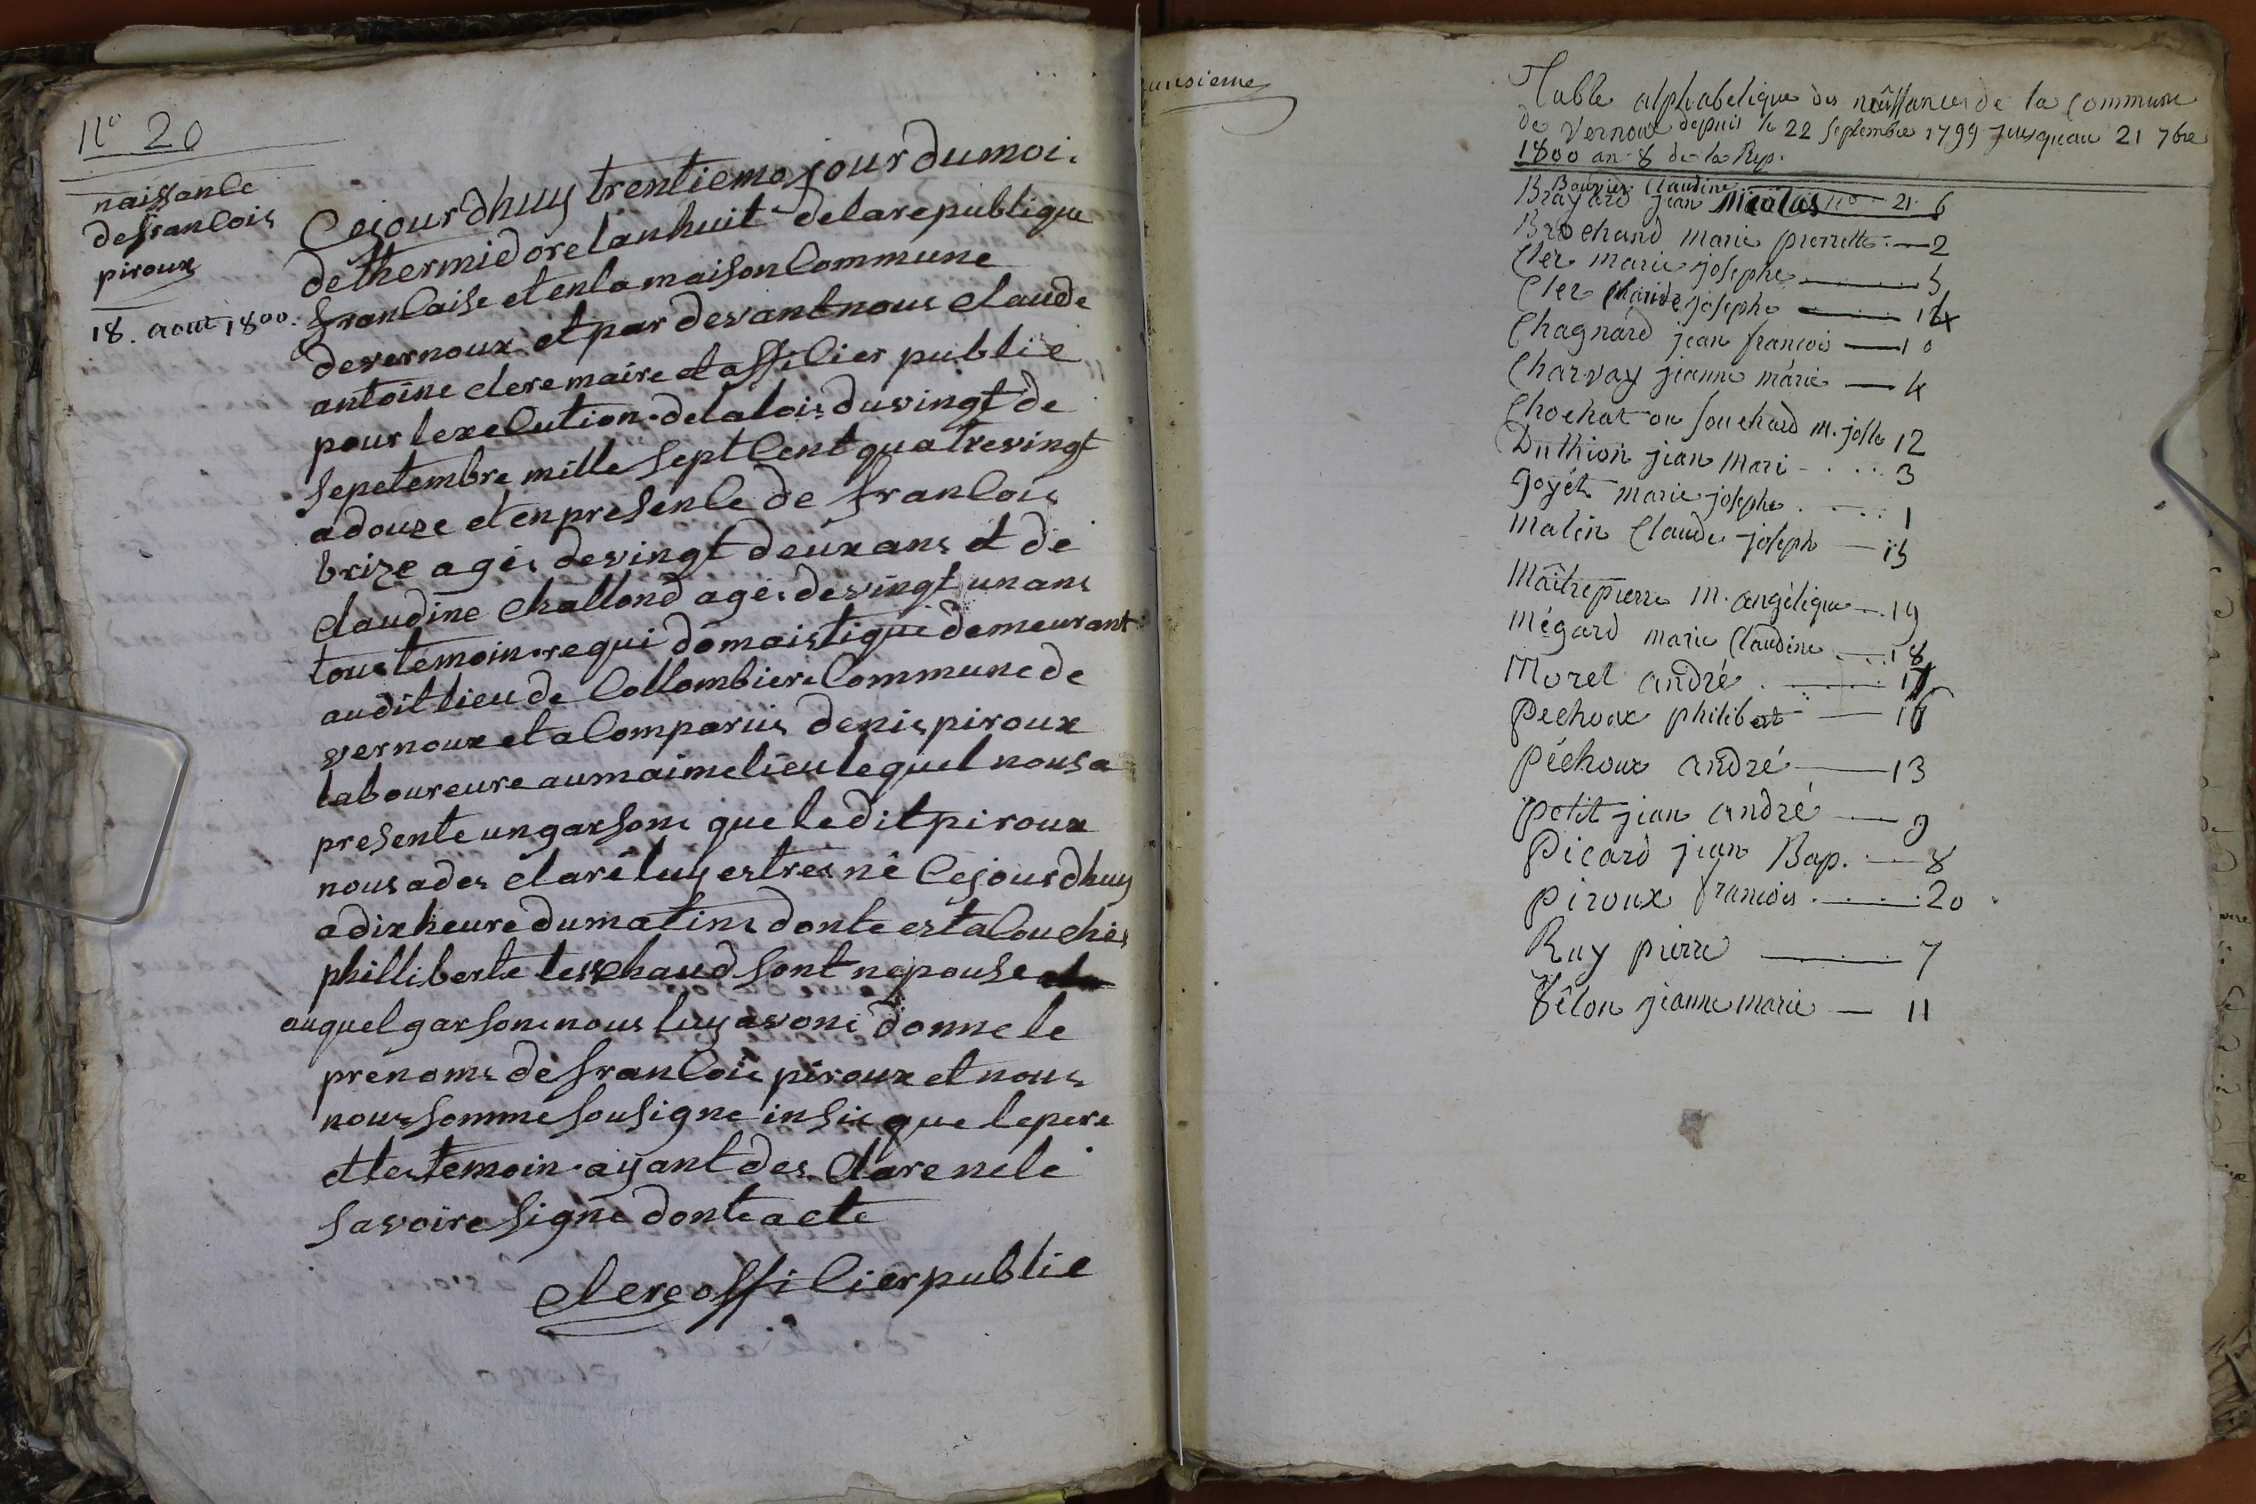 N° 20
naissance
de francois
piroux
18. aout 1800.
Cejourdhuy trentieme jour du moi.
de thermidore lan huit de la republique
francaise et en la maison Commune
de vernoux et par devant nous claude
antoine clere maire et afficier public
pour lexecution de la lois du vingt de
sepetembre mille sept Cent quatrevingt
a douze et en presence de francois
brize agés de vingt deux ans et de
claudine Challond agés de vingt un ans
tous témoin requi domaistique demeurant
audit lieu de Collombiere Commune de
vernoux et a Comparus denis piroux
laboureure au maime lieu lequel nous a
presente un garsons que ledit piroux
nous a des clarê luy estres nê Cejourdhuy
a dix heure du matins donte est acouchés
philliberte teschaud sont nepouse
auquel garsons nous luy avons donne le
prenoms de francois piroux et nous
nous somme sousigne insis que le pere
et les temoin ayant des clare nele
savoire signe donte acte
clere officier public
unsieme
Table alphabetique des naissances de la Commune
de Vernoux depuis le 22 septembre 1799 jusqueau 21 7bre
1800 an 8 de la Rep.
Bouvier Claudine n° 21
Brayard jean Nicolas 6
Brochand marie pierrette 2
Cler marie josephe 5
Cler josephe
Chagnard jean francois 10
Charvay jeanne marie 4
Chochat ou souchard m. josle 12
Duthion jean mari 3
Goyét marie josephe 1
Malin Claude joseph 15
Maîtrepierre m. angélique 19
Mégard marie Claudine 18
Morel andré
Pechoux philibert
Péchoux andré 13
Petit jean andré 9
Picard jean Bap. 8
Piroux francois 20
Ruy pierre 7
Vêlon jeanne marie 11